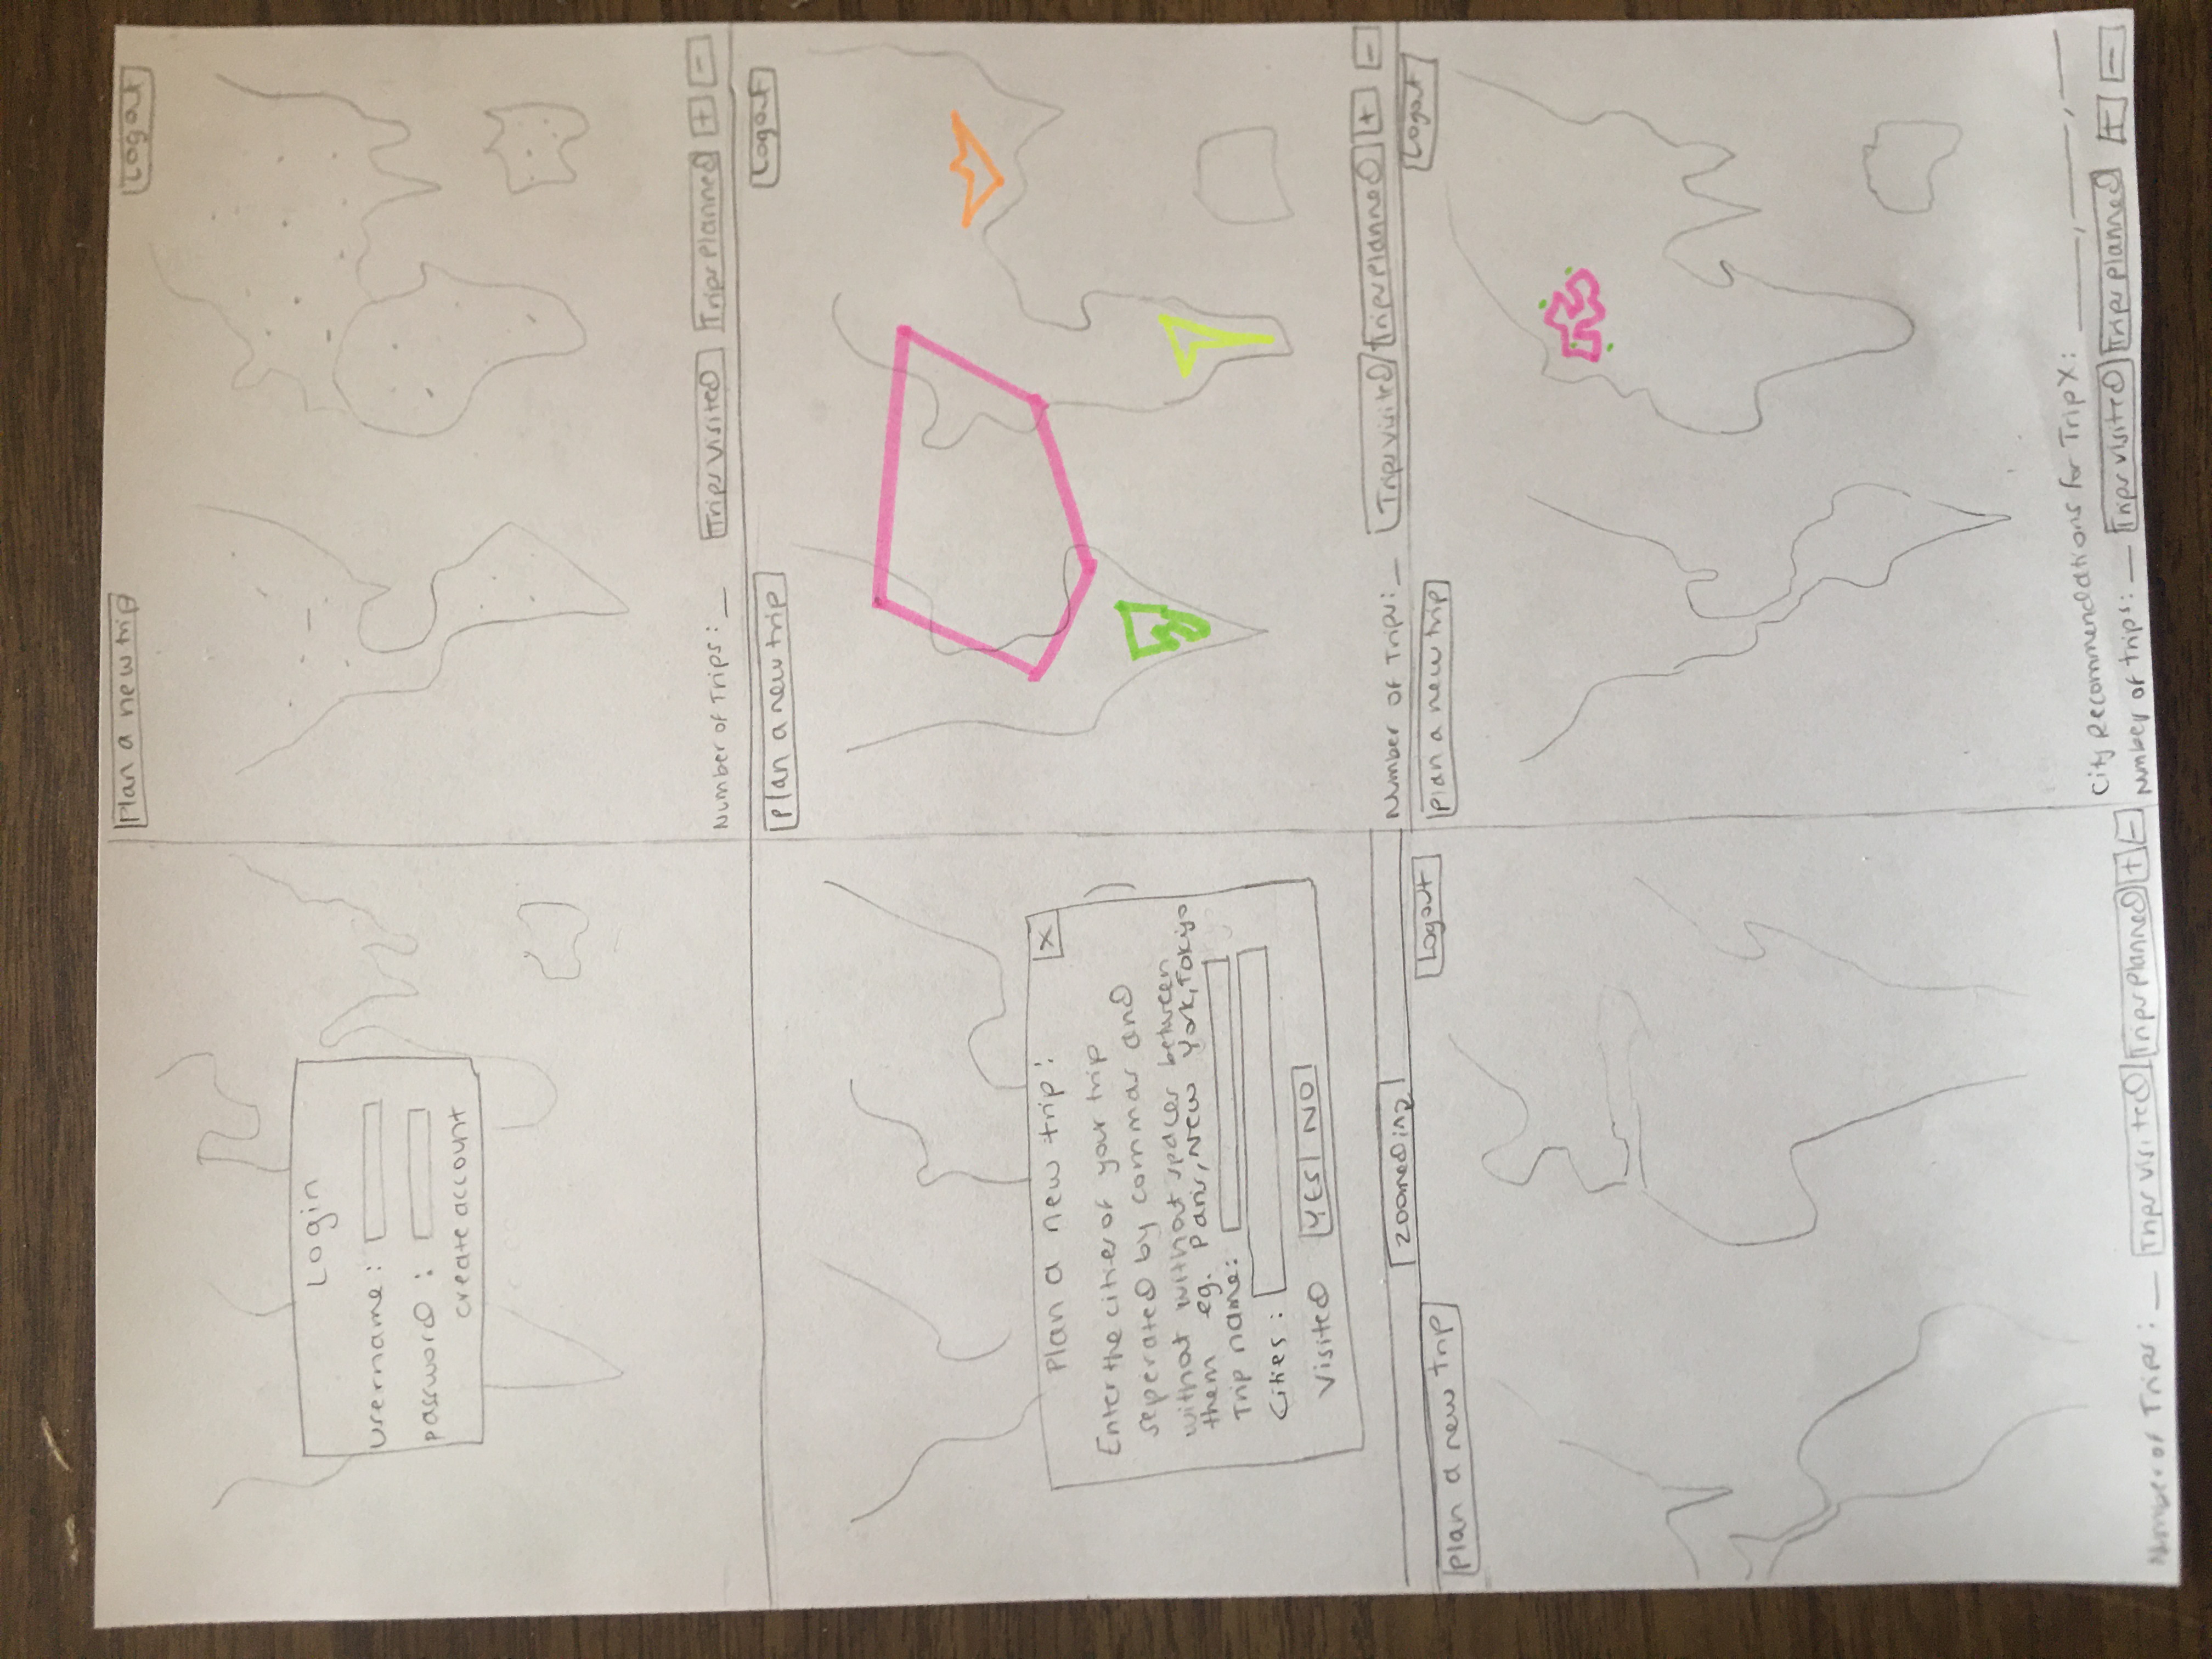 Login
username:
password:
create account
Plan a new trip
Logout
Number of Trips: __ Trips Visited Trips Planned + -
Plan a new trip: X
Enter the cities of your trip
seperated by commas and
without without spaces between
them eg. Paris, New York, Tokyo
Trip name:
Cities:
Visited YES NO
Plan a new trip
Logout
Number of Trips: __ Trips visited Trips Planned + -
zoomed in
Plan a new trip
Logout
Number of Trips: __ Trips visited Trips Planned + -
Plan a new trip
Logout
City Recommendations for Trip X: ____, ____, ____
Number of trips: __ Trips visited Trips planned + -